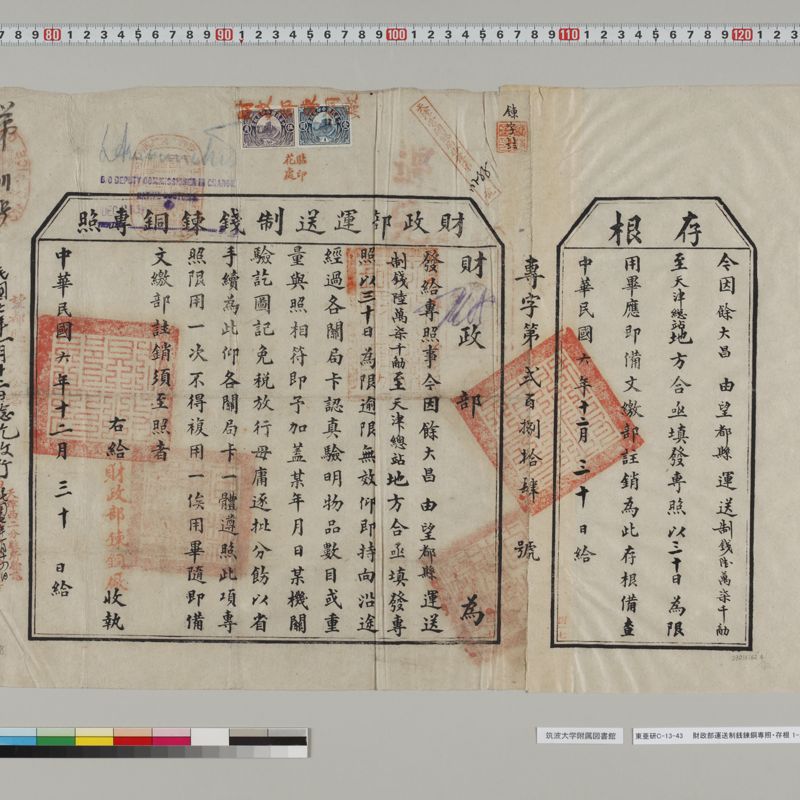 存根
令因 餘大昌 由 望都縣 運送 制錢陸萬柒千觔
至 天津總站 地方合亟填發專照以三十日為限
用畢應即備文繳部註銷為此存根備查
中華民國 六 年 十二 月 三十 日給
專字第 貳百捌拾肆 號
財政部運送制錢鍊銅專照
財政部 為
發給專照事令因 餘大昌 由 望都縣 運送
制錢陸萬柒千觔 至 天津總站 地方合亟填發專
照以三十日為限逾限無效仰即持向沿途
經過各關局卡認真驗明物品數目或重
量與照相符即予加蓋某年月日某機關
驗訖圖記免稅放行毋庸逐批分餝以省
手續為此仰各關局卡一體遵照此項專
照限用一次不得複用一俟用畢隨即備
文繳部註銷須至照者
右給 財政部鍊銅廠 收執
中華民國 六 年 十二 月 三十 日給
貼印花處
鍊字號
第
DEPUTY COMMISSIONER IN CHARGE
筑波大学附属図書館
東亜研C-13-43 財政部運送制銭錬銅專照・存根 1-
80 90 100 110 120